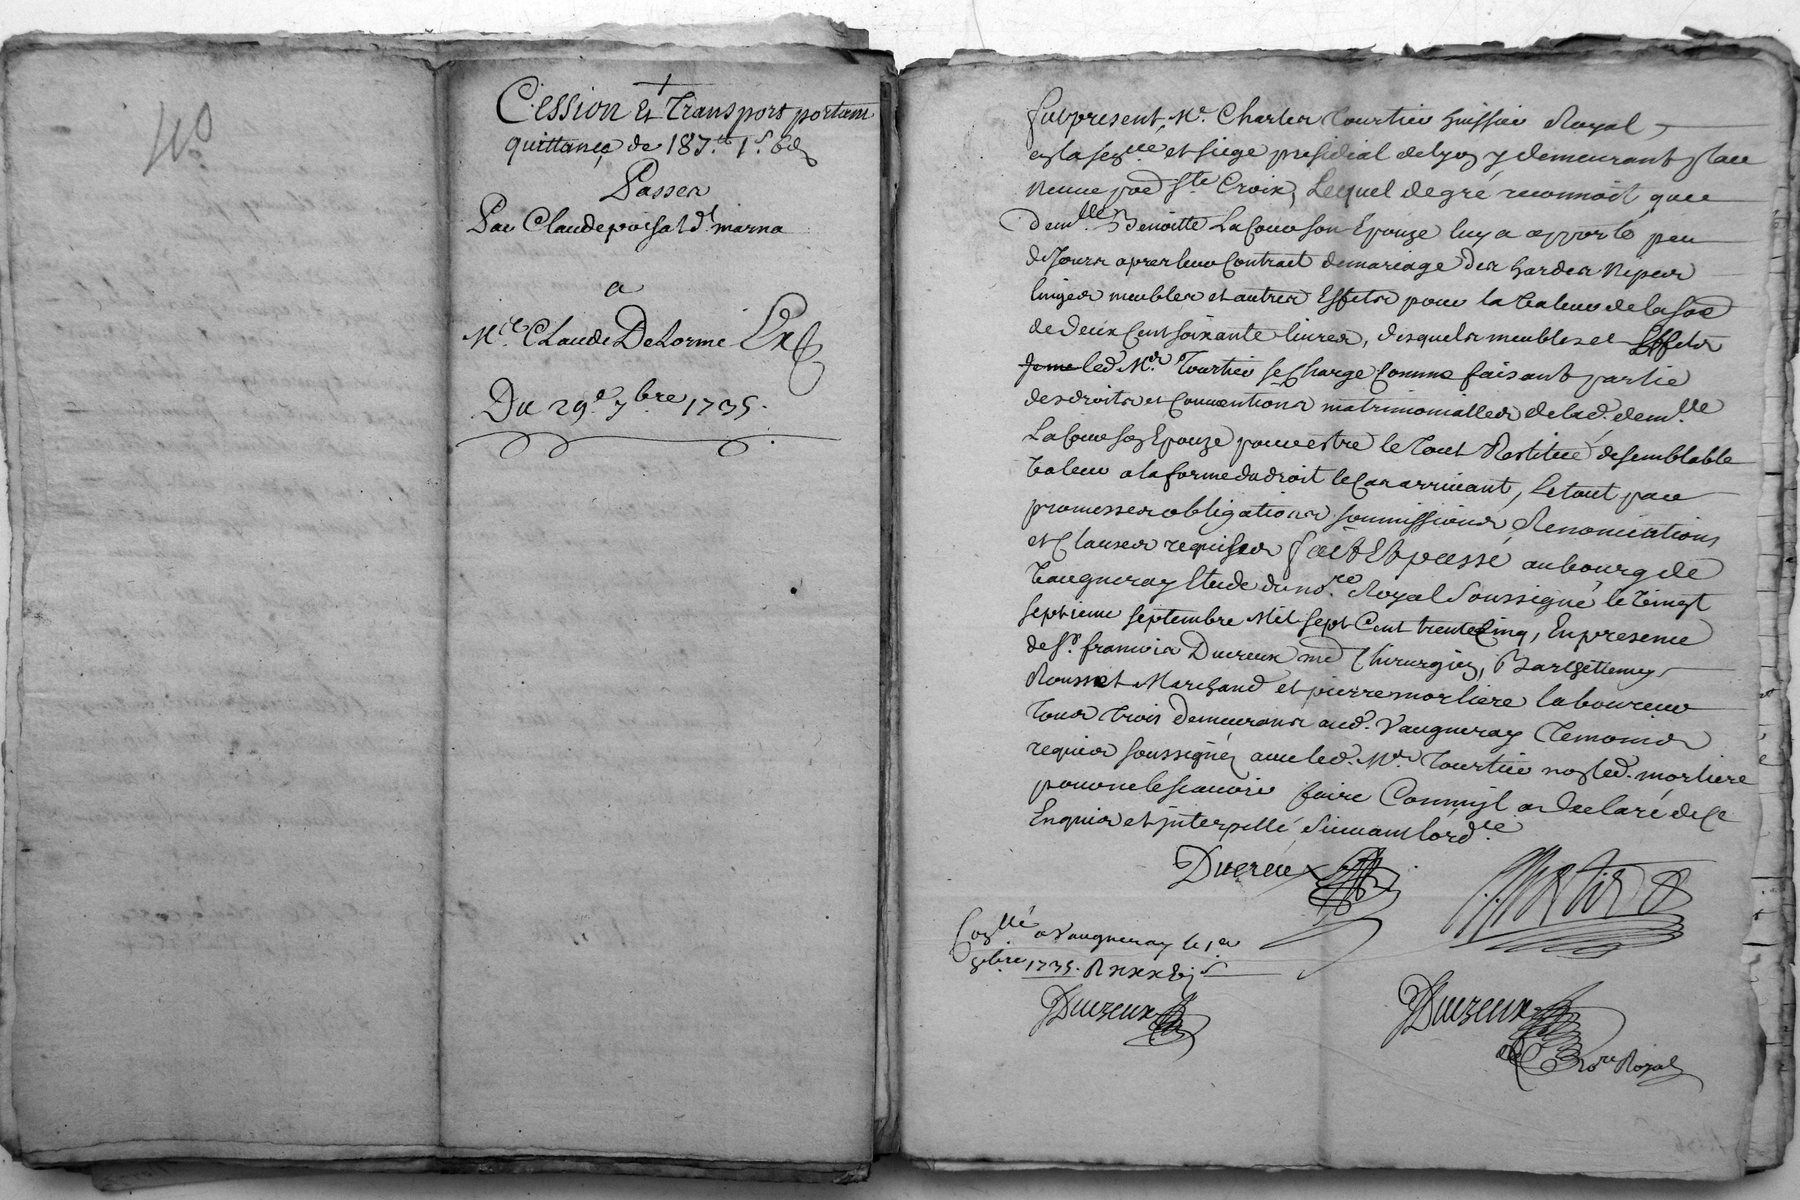 Cession Et Transport portant
quittance de 187.lt 1.s 6d
Passer
Par Claude poisat dt marna
a
Me. Claude Delorme Ex
Du 29.e 7bre 1735.
fut present, Me. Charles Tourtier huissier Royal
en la sen.ée et siege presidial de Lyon y demeurant place
neuve psse Ste Croix, Lequel de gré reconnoit que
Demlle Benoitte Lafouson Epouze luy a apporté peu
de Jours apres leur Contract de mariage des hardes Nipes
linges meubles et autres Effets pour la valeur de la so
de deux Cent soixante livres, desquels meubles et Effets
led. Mr. Tourtier se Charge Comme faisant partie
des droits et Conventions matrimonialles de lad. demlle
Lafouson Epouze pour estre le tout Restitué de semblable
valeur a la forme du droit le Cas arrivant, Le tout par
promesses obligations soumissions Renonciations
et Clauses requises fait Et passé au bourg de
Vaugneray Etude du no.re Royal Soussigné le vingt
septieme septembre Mil sept Cent trente Cinq, En presence
de Sr. francois Ducreux me Chirurgien, Barthelemy
Rousset Marchand et pierre morliere laboureur
tous trois demeurants aud. Vaugneray Temoins
requis soussignés avec led. Mr. Tourtier non led. morliere
pour ne le scavoir faire Comm'il a declaré de Ce
Enquis et interpellé suivant lord.ce
Ducreux
Con.llé a Vaugneray le 1er
8bre 1735. R
Ducreux
Ducreux
no.re Royal